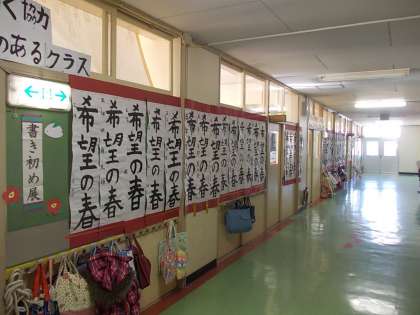 く協力
のあるクラス
書き初め展
希望の春
希望の春
希望の春
希望の春
希望の春
希望の春
希望の春
希望の春
希望の春
希望の春
希望の春